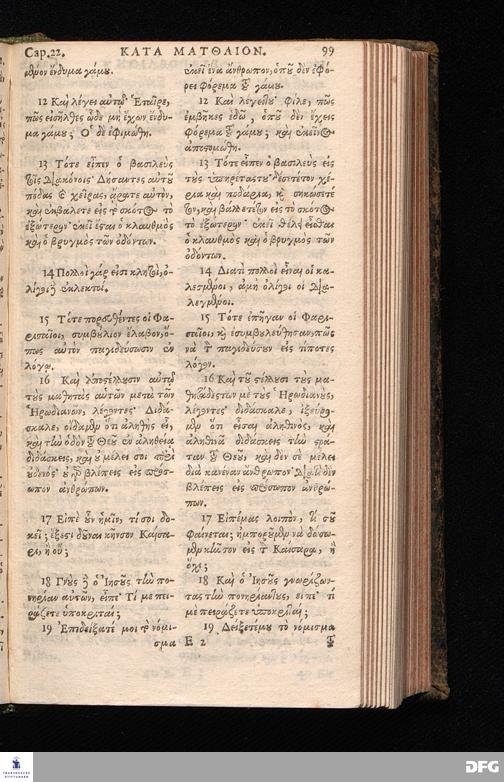 Cap. 22. ΚΑΤΑ ΜΑΤΘΑΙΟΝ. 99
ἔνδυμα γάμου.
12 Καὶ λέγει αὐτῷ· Ἑταῖρε,
πῶς εἰσῆλθες ὧδε μὴ ἔχων ἔνδυ-
μα γάμου; Ὁ δὲ ἐφιμώθη.
13 Τότε εἶπεν ὁ βασιλεὺς
τοῖς διακόνοις· Δήσαντες αὐτοῦ
πόδας καὶ χεῖρας, ἄρατε αὐτὸν,
καὶ ἐκβάλετε εἰς τὸ σκότος τὸ
ἐξώτερον· ἐκεῖ ἔσται ὁ κλαυθμὸς
καὶ ὁ βρυγμὸς τῶν ὀδόντων.
14 Πολλοὶ γάρ εἰσι κλητοὶ, ὀ-
λίγοι δὲ ἐκλεκτοί.
15 Τότε πορευθέντες οἱ Φα-
ρισαῖοι, συμβούλιον ἔλαβον, ὅ-
πως αὐτὸν παγιδεύσωσιν ἐν
λόγῳ.
16 Καὶ ἀποστέλλουσιν αὐτῷ
τοὺς μαθητὰς αὐτῶν μετὰ τῶν
Ἡρωδιανῶν, λέγοντες· Διδά-
σκαλε, οἴδαμεν ὅτι ἀληθὴς εἶ,
καὶ τὴν ὁδὸν τοῦ Θεοῦ ἐν ἀληθείᾳ
διδάσκεις, καὶ οὐ μέλει σοι περὶ
οὐδενός· οὐ γὰρ βλέπεις εἰς πρόσ-
ωπον ἀνθρώπων.
17 Εἰπὲ οὖν ἡμῖν, τί σοι δο-
κεῖ; ἔξεστι δοῦναι κῆνσον Καίσα-
ρι, ἢ οὔ;
18 Γνοὺς δὲ ὁ Ἰησοῦς τὴν πο-
νηρίαν αὐτῶν, εἶπε· Τί με πει-
ράζετε ὑποκριταί;
19 Ἐπιδείξατέ μοι τὸ νόμι-
σμα
ἐκεῖ ἕνα ἄνθρωπον, ὁποῦ δὲν ἐφό-
ρει φόρεμα τοῦ γάμου.
12 Καὶ λέγει του· φίλε, πῶς
ἐμβῆκες ἐδῶ, ὁποῦ δὲν ἔχεις
φόρεμα τοῦ γάμου; καὶ ἐκεῖνος
ἀποστομώθη.
13 Τότε εἶπεν ὁ βασιλεὺς εἰς
τοὺς ὑπηρέτας του· δέσετέ τον χέ-
ρια καὶ ποδάρια, καὶ σηκώσετέ
τον, καὶ βάλλετέ τον εἰς τὸ σκότος
τὸ ἐξώτερον· ἐκεῖ θέλει εἶσθαι
ὁ κλαυθμὸς καὶ ὁ βρυγμὸς τῶν
ὀδόντων.
14 Διατὶ πολλοὶ εἶναι οἱ κα-
λεσμένοι, ἀμὴ ὀλίγοι οἱ δια-
λεγμένοι.
15 Τότε ἐπῆγαν οἱ Φαρι-
σαῖοι, καὶ ἐσυμβουλεύθησαν, πῶς
νὰ τὸν παγιδεύσουν εἰς τίποτες
λόγον.
16 Καὶ τοῦ στέλλουσι τοὺς μα-
θητάδες των μὲ τοὺς Ἡρωδιανοὺς,
λέγοντες· διδάσκαλε, ἠξεύρο-
μεν ὅτι εἶσαι ἀληθινὸς, καὶ
ἀληθινὰ διδάσκεις τὴν στρά-
ταν τοῦ Θεοῦ, καὶ δὲν σὲ μέλει
διὰ κανέναν ἄνθρωπον· διατὶ δὲν
βλέπεις εἰς πρόσωπον ἀνθρώ-
πων.
17 Εἰπέ μας λοιπὸν, τί σοῦ
φαίνεται; ἠμποροῦμεν νὰ δώσω-
μεν κῆνσον εἰς τὸν Καίσαρα, ἢ
ὄχι;
18 Καὶ ὁ Ἰησοῦς γνωρίζων-
τας τὴν πονηρίαν τους, εἶπε· τί
μὲ πειράζετε ὑποκριταί;
19 Δείξετέ μου τὸ νόμισμα
E 2 τοῦ
FRANCKESCHE STIFTUNGEN
DFG